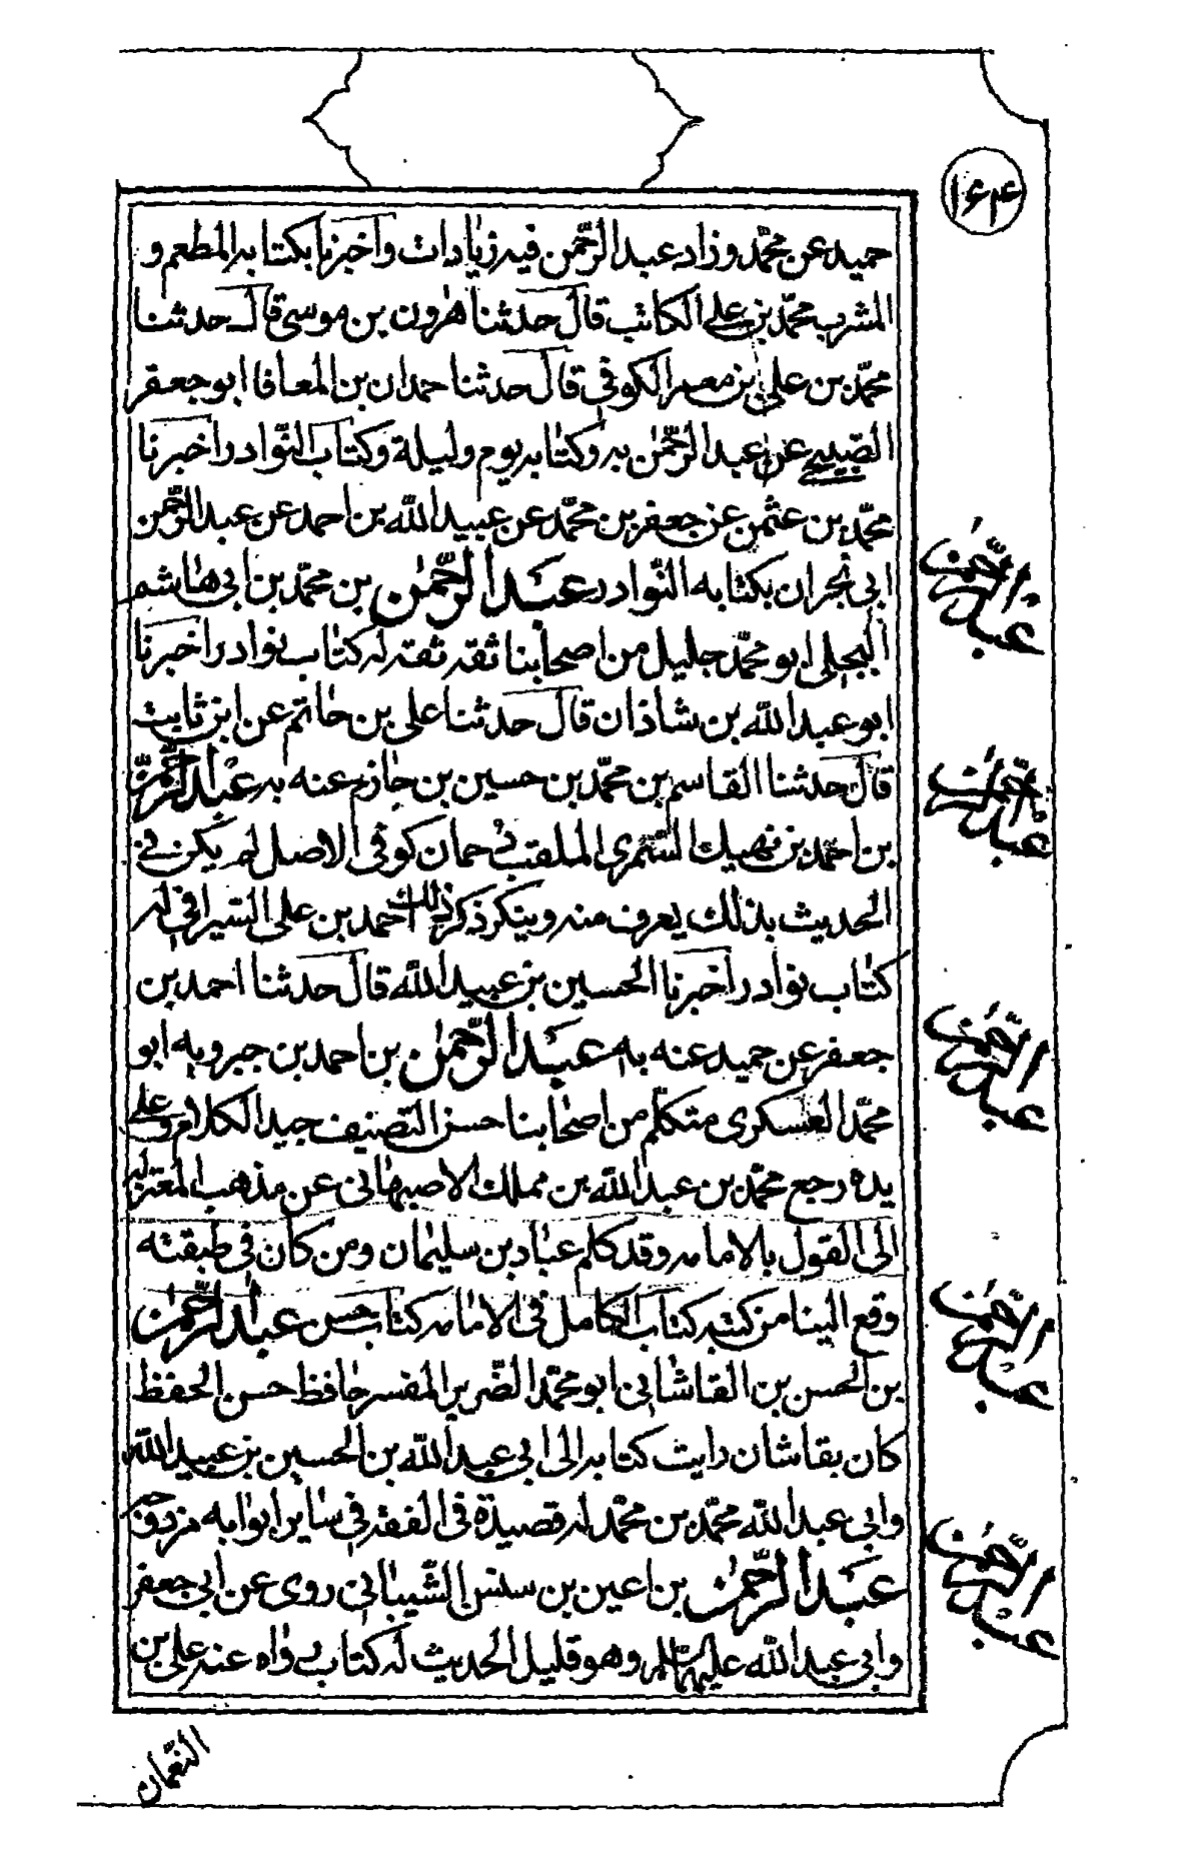 ١٦٤
حميد عن محمّد وزاد عبد الرّحمن فيه زيادات واخبرنا بكتابه المطعم و
المشرب محمّد بن علي الكاتب قال حدثنا هرون بن موسى قال حدثنا
محمّد بن علي بن معمر الكوفي قال حدثنا حمدان بن المعافا ابو جعفر
الصّبيحي عن عبد الرّحمٰن به وكتابه يوم وليلة وكتاب النّوادر اخبرنا
محمّد بن عثمن عن جعفر بن محمّد عن عبيد اللّه بن احمد عن عبد الرّحمن
ابي نجران بكتابه النّوادر عبد الرّحمٰن بن محمّد بن ابي هاشم
البجلي ابو محمّد جليل من اصحابنا ثقه ثقه له كتاب نوادر اخبرنا
ابو عبد اللّه بن شاذان قال حدثنا علي بن حاتم عن ابن ثابت
قال حدثنا القاسم بن محمّد بن حسين بن حازم عنه به عبد الرّحمن
بن احمد بن نهيك السّمري الملقب دحمان كوفى الاصل لم يكن في
الحديث بذلك يعرف منه وينكر ذكر ذلك احمد بن على السّيرافي له
كتاب نوادر اخبرنا الحسين بن عبيد اللّه قال حدثنا احمد بن
جعفر عن حميد عنه به عبد الرّحمٰن بن احمد بن جبرويه ابو
محمّد العسكرى متكلّم من اصحابنا حسن التصنيف جيد الكلام وعلي
يده رجع محمّد بن عبد اللّه بن مملك الاصبهاني عن مذهب المعتزله
الى القول بالامامه وقد كلم عبّاد بن سليمان ومن كان في طبقته
وقع الينا من كتبه كتاب الكامل في الامامه كتاب حسن عبد الرّحمٰن
بن الحسن بن القاشاني ابو محمّد الضّرير المفسر حافظ حسن الحفظ
كان بقاشان رايت كتابه الى ابي عبد اللّه بن الحسين بن عبيد اللّه
وابي عبد اللّه محمّد بن محمّد له قصيدة في الفقه في ساير ابوابه مزدوجه
عبد الرّحمٰن بن اعين بن سنسن الشّيباني روى عن ابي جعفر
وابي عبد اللّه عليهما السلام وهو قليل الحديث له كتاب رواه عنه علي بن
عبد الرّحمن
عبد الرّحمن
عبد الرّحمن
عبد الرّحمن
عبد الرّحمن
النّعمان